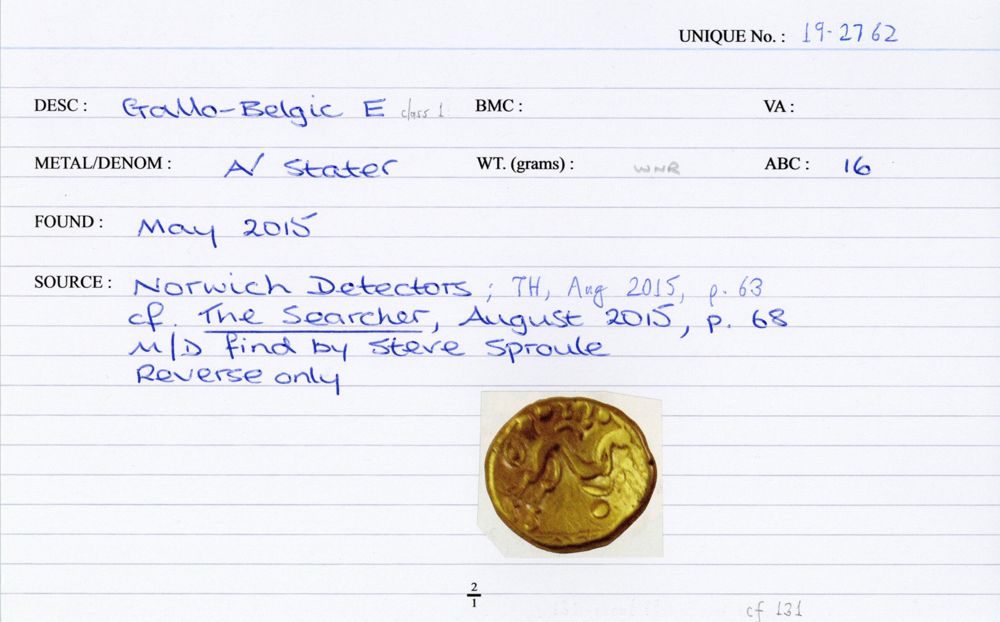 UNIQUE No. : 19-2762
DESC : Gallo-Belgic E class 1 BMC : VA :
METAL/DENOM : A/ Stater WT. (grams) : WNR ABC : 16
FOUND : May 2015
SOURCE : Norwich Detectors ; TH, Aug 2015, p. 63
cf. The Searcher, August 2015, p. 68
M/D find by Steve Sproule
Reverse only
2
1
cf 131